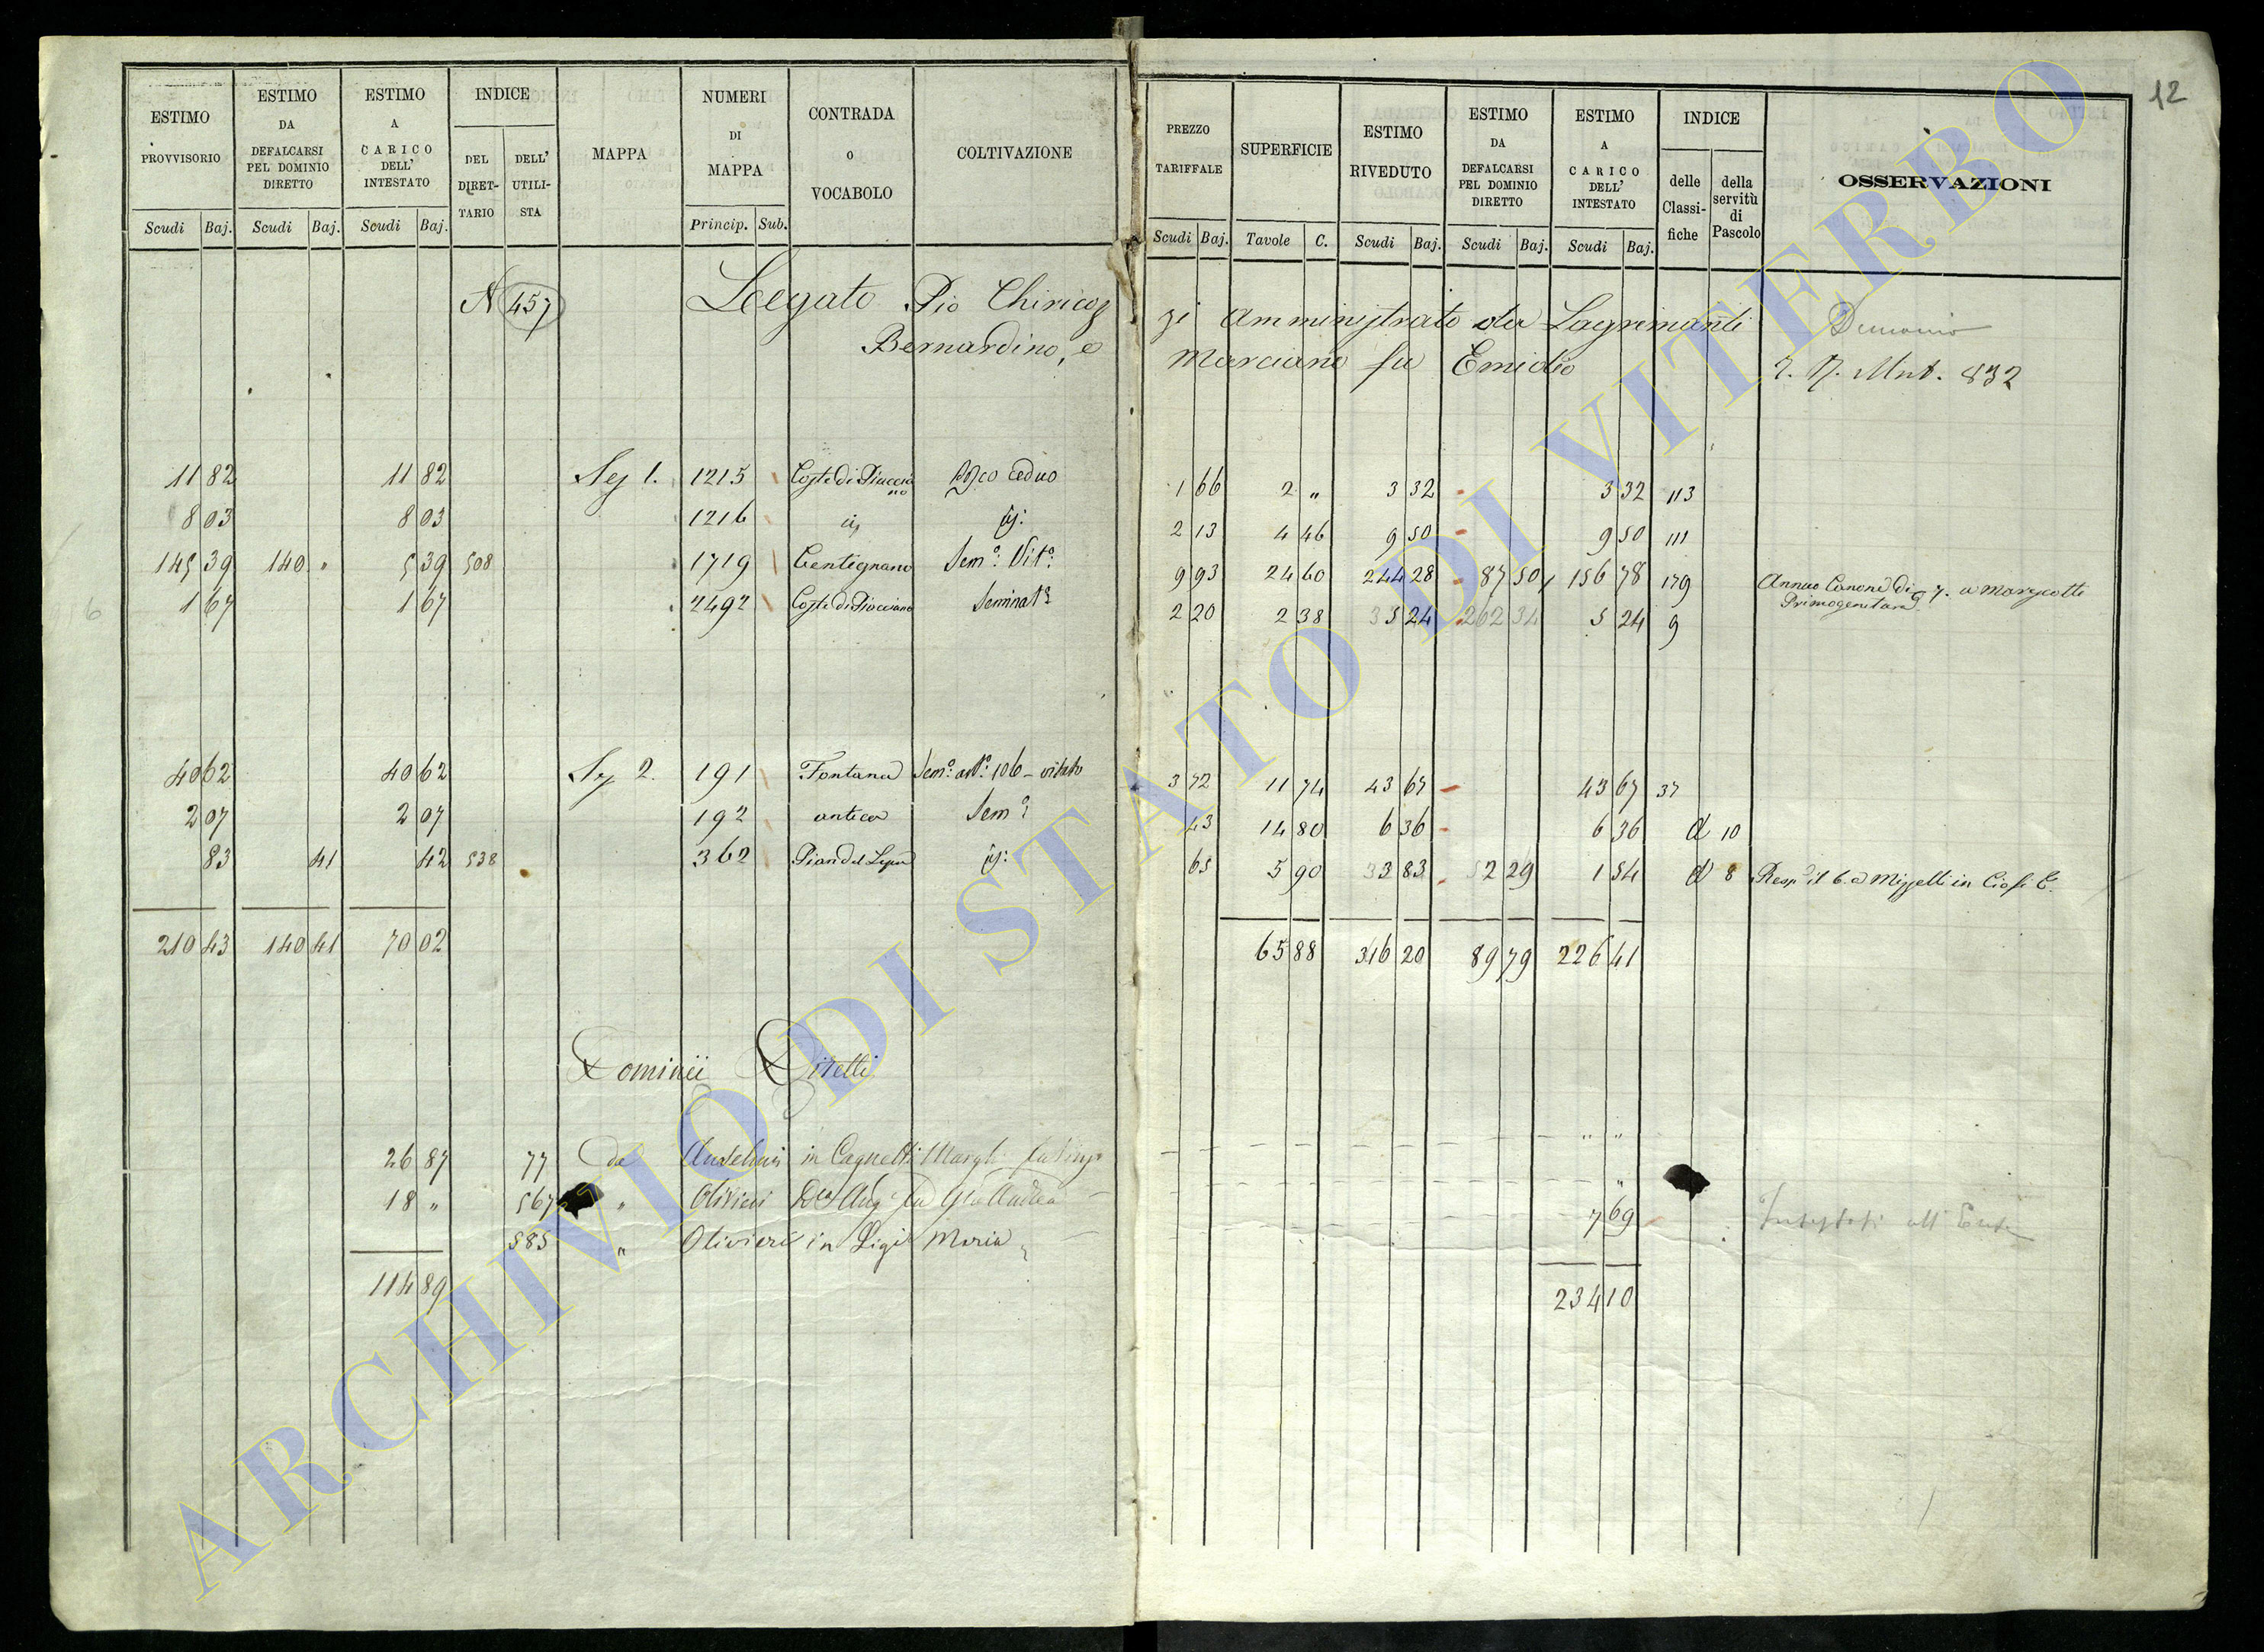 12
ESTIMO PROVVISORIO Scudi Baj.
ESTIMO DA DEFALCARSI PEL DOMINIO DIRETTO Scudi Baj.
ESTIMO A CARICO DELL' INTESTATO Scudi Baj.
INDICE DEL DIRETTARIO DELL' UTILISTA
MAPPA
NUMERI DI MAPPA Princip. Sub.
CONTRADA o VOCABOLO
COLTIVAZIONE
PREZZO TARIFFALE Scudi Baj.
SUPERFICIE Tavole C.
ESTIMO RIVEDUTO Scudi Baj.
ESTIMO DA DEFALCARSI PEL DOMINIO DIRETTO Scudi Baj.
ESTIMO A CARICO DELL' INTESTATO Scudi Baj.
INDICE delle Classifiche della servitù di Pascolo
OSSERVAZIONI
N 457 Legato Pio Chiricozzi Amministrato da Lagrimanti
Bernardino, e Marciano fu Emidio 832
11 82 11 82 Sez 1. 1215 Bosco ceduo 1 66 2 " 3 32 3 32 113
8 03 8 03 1216 2 13 4 46 9 50 9 50 111
145 39 140 " 5 39 508 1719 Centignano Sem.º Vit.º 9 93 24 60 244 28 87 50 156 78 179 Annuo Canone di a Marescotti
Primogenitura
1 67 1 67 2492 Seminat.º 2 20 2 38 5 24 262 34 5 24 9
40 62 40 62 Sez 2. 191 Fontana Sem.º art.º 106 - vitato 3 72 11 74 43 67 43 67 37
2 07 2 07 192 antica Sem.º 43 14 80 6 36 6 36 d 10
83 41 42 538 362 65 5 90 3 83 2 29 1 54 d 8 Resp. il 6. a Mizzelli in
210 43 140 41 70 02 65 88 316 20 89 79 226 41
Dominii Diretti
26 87 77 da in Cagnetti Margh.
18 " 567 " Olivieri fu Gio Andrea
585 " Olivieri in Ligi Maria 7 69 Intestati all'
114 89 234 10
ARCHIVIO DI STATO DI VITERBO